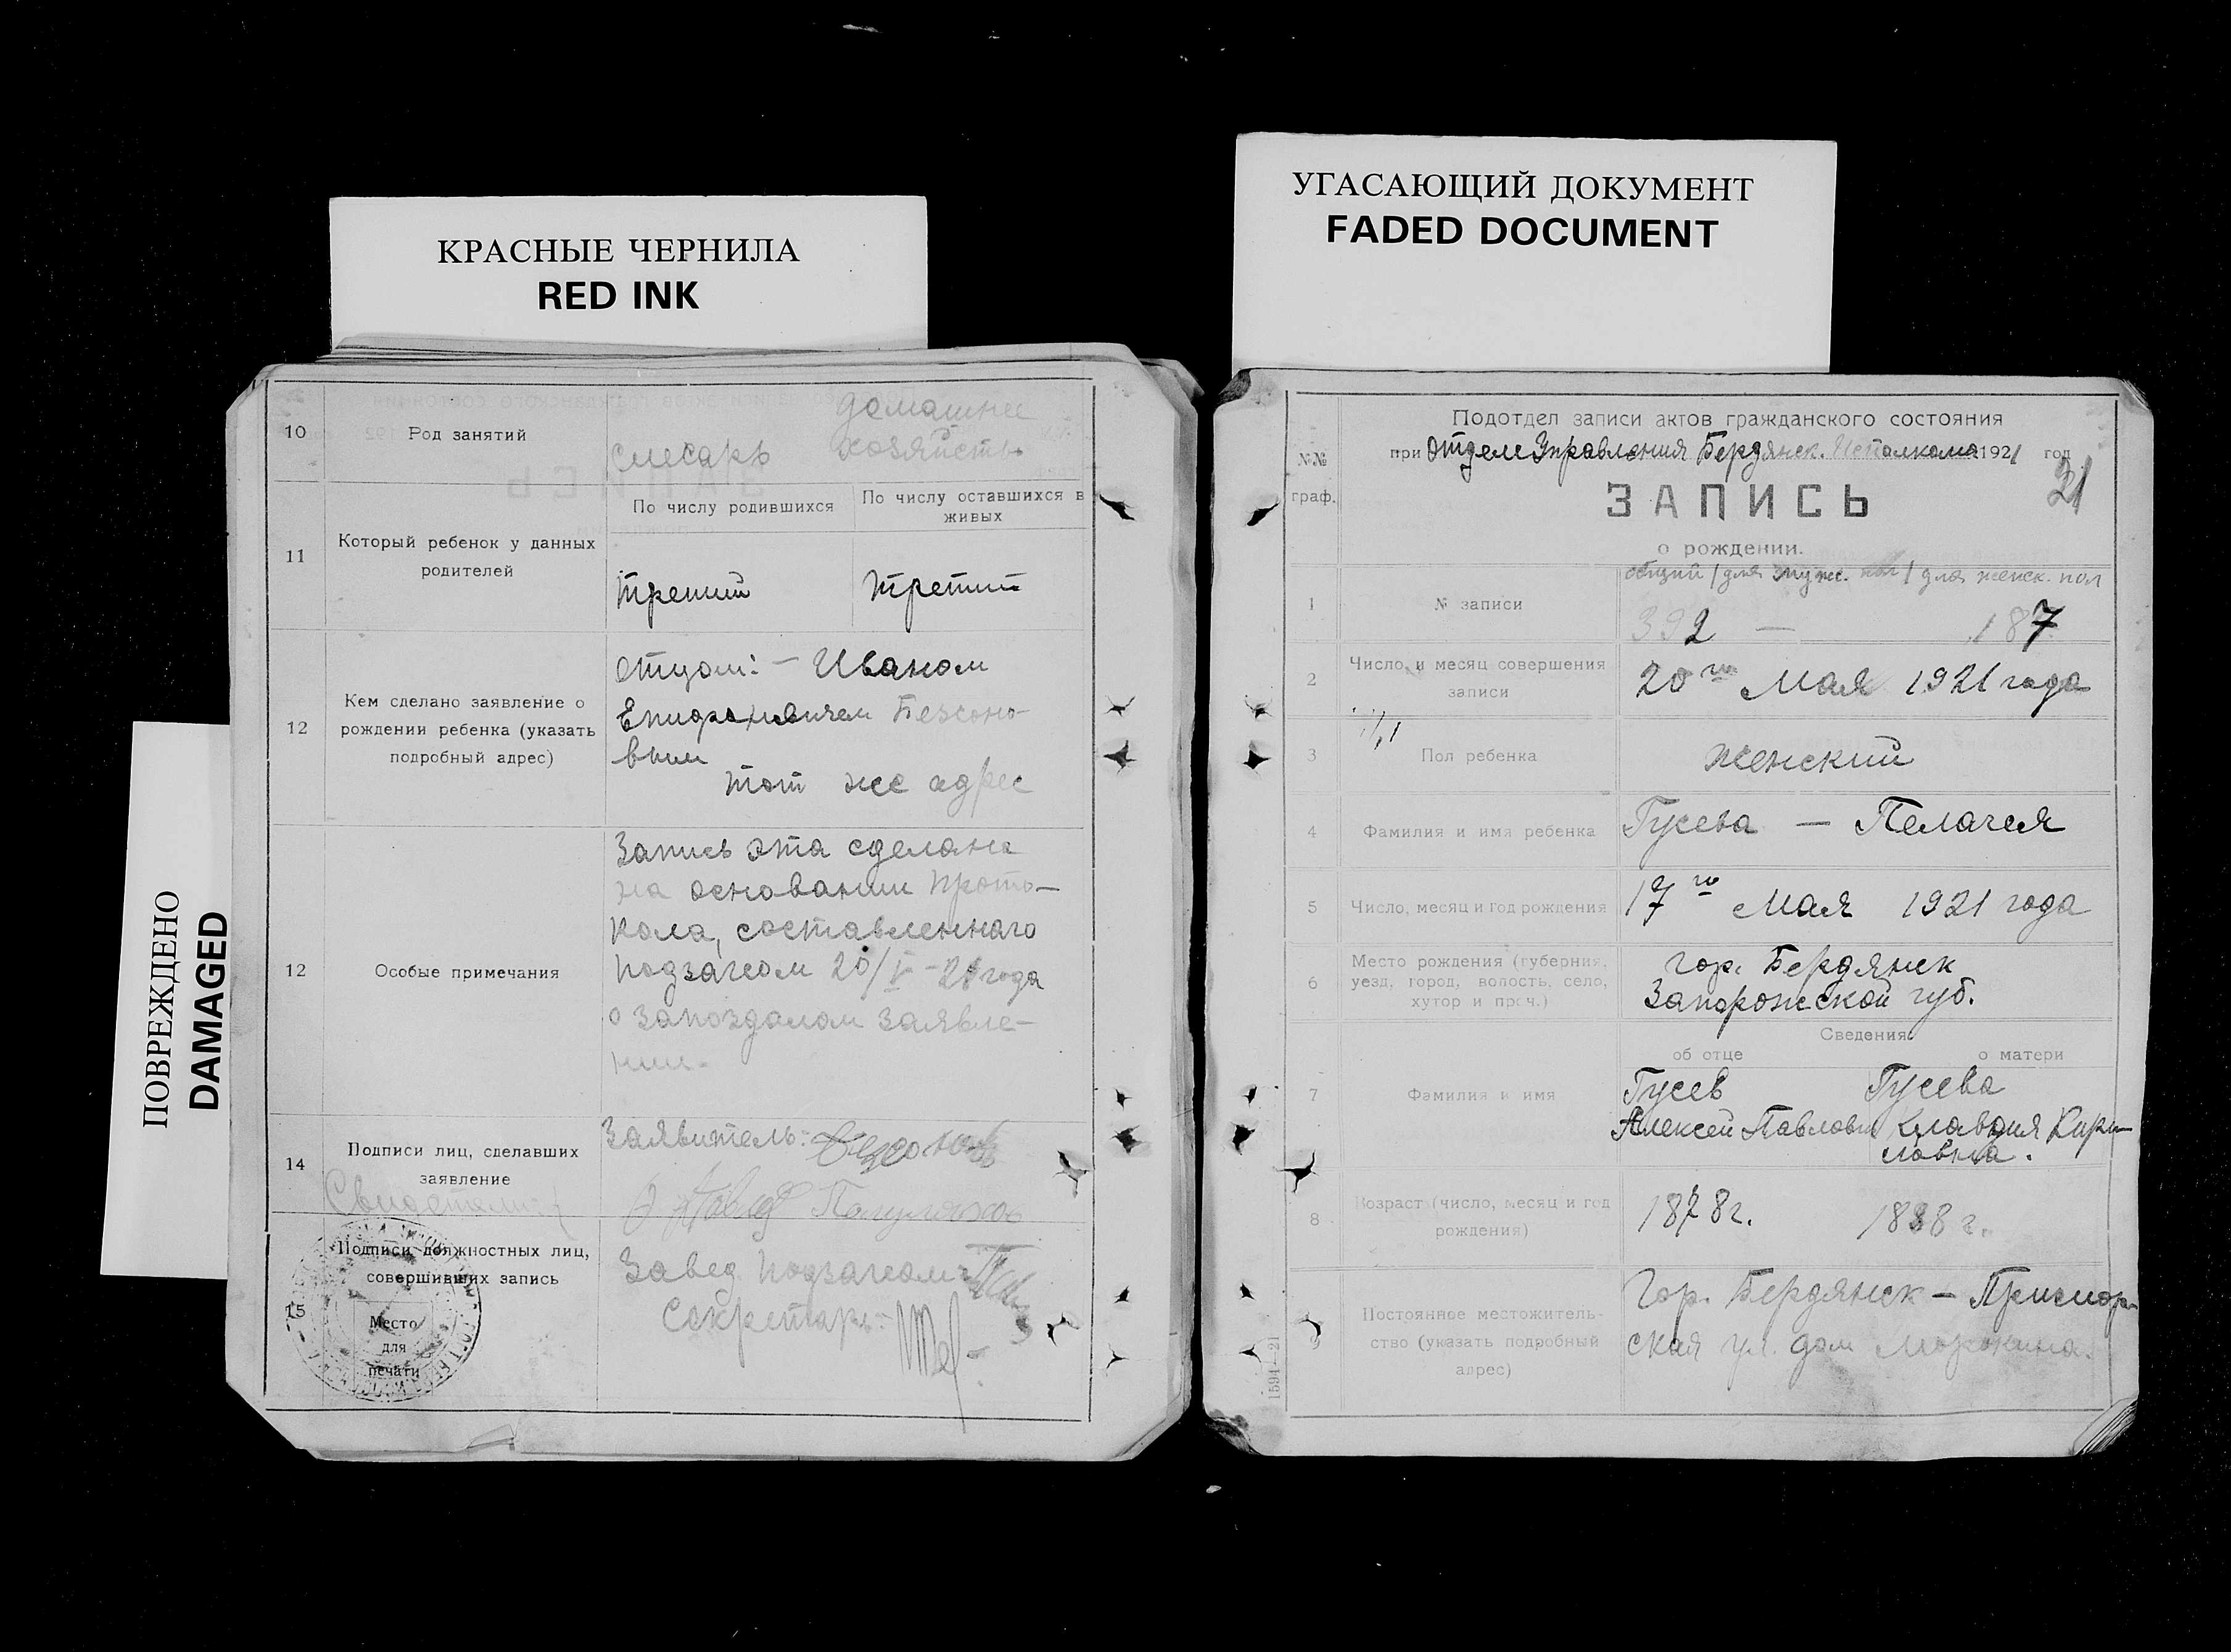 КРАСНЫЕ ЧЕРНИЛА
RED INK
УГАСАЮЩИЙ ДОКУМЕНТ
FADED DOCUMENT
ПОВРЕЖДЕНО
DAMAGED
10
Род занятий
слесарь
домашнее
хозяйств.
11
Который ребенок у данных
родителей
По числу родившихся
По числу оставшихся в
живых
третий
третий
12
Кем сделано заявление о
рождении ребенка (указать
подробный адрес)
отцом: — Иваном
Епифановичем Безсоно-
вым
тот же адрес
12
Особые примечания
Запись эта сделана
на основании прото-
кола, составленнаго
подзагсом 20/V-21 года
о запоздалом заявле-
нии.
14
Подписи лиц, сделавших
заявление
Заявитель:
Свидетели:
15
Подписи должностных лиц,
совершивших запись
Место
для
печати
Завед. подзагсом:
Секретарь:
№№
граф.
Подотдел записи актов гражданского состояния
при Отделе Управления Бердянск. Исполкома 1921 год
21
ЗАПИСЬ
о рождении.
1
№ записи
общий / для муж. пол / для женск. пол
392 — 187
2
Число и месяц совершения
записи
20го Мая 1921 года
3
Пол ребенка
Женский
4
Фамилия и имя ребенка
Гусева — Пелагея
5
Число, месяц и год рождения
17го Мая 1921 года
6
Место рождения (губерния,
уезд, город, волость, село,
хутор и проч.)
гор. Бердянск
Запорожской губ.
Сведения:
об отце
о матери
7
Фамилия и имя
Гусев
Алексей Павлович
Гусева
Клавдия Кири-
ловна.
8
Возраст (число, месяц и год
рождения)
1878 г.
1888 г.
9
Постоянное местожитель-
ство (указать подробный
адрес)
Гор. Бердянск — Приморс-
ская ул. дом
1594—21